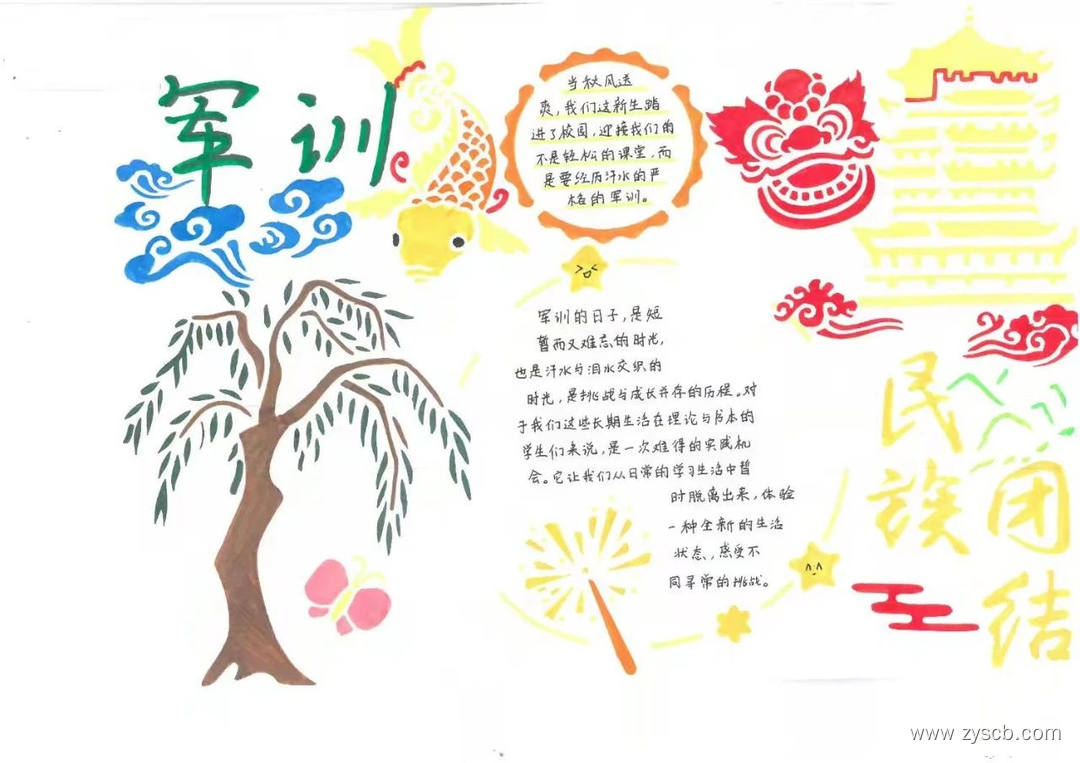 军训
当秋风送
爽，我们这新生踏
进了校园，迎接我们的
不是轻松的课堂，而
是要经历汗水的严
格的军训。
军训的日子，是短
暂而又难忘的时光，
也是汗水与泪水交织的
时光，是挑战与成长并存的历程。对
于我们这些长期生活在理论与书本的
学生们来说，是一次难得的实践机
会。它让我们从日常的学习生活中暂
时脱离出来，体验
一种全新的生活
状态，感受不
同寻常的挑战。
民
族团
结
www.zyscb.com